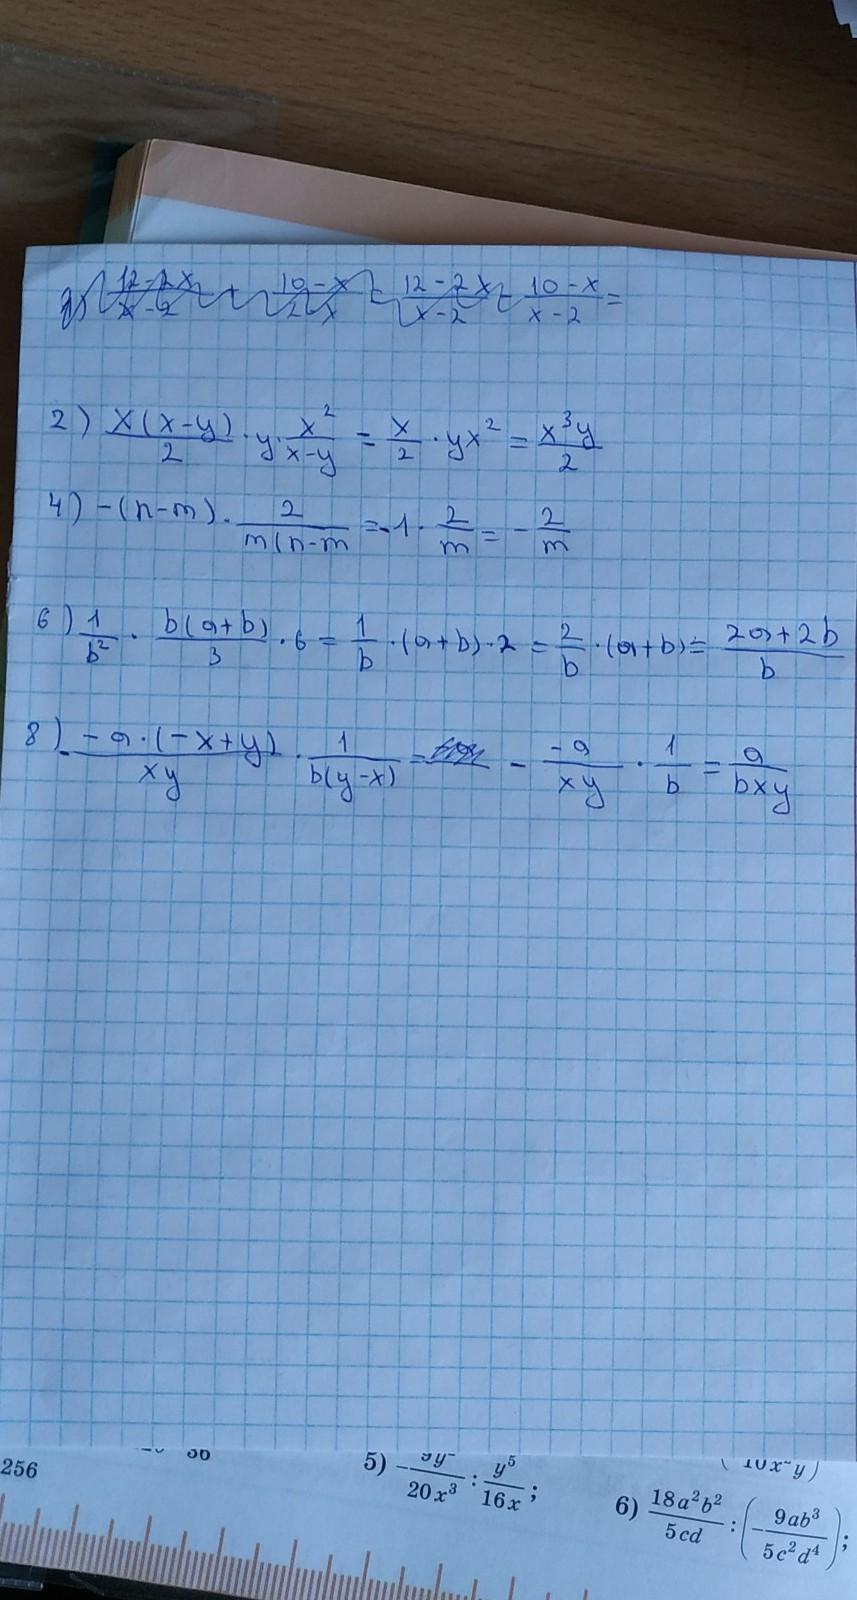 12-2x/x-2 + 10-x/2-x = 12-2x/x-2 - 10-x/x-2 =
2) x(x-y)/2 · y · x²/x-y = x/2 · yx² = x³y/2
4) -(n-m) · 2/m(n-m = -1 · 2/m = - 2/m
6) 1/b² · b(a+b)/3 · 6 = 1/b · (a+b) · 2 = 2/b · (a+b) = 2a+2b/b
8) - -a·(-x+y)/xy · 1/b(y-x) = - -a/xy · 1/b = a/bxy
256
5) - 9y²/20x³ : y⁵/16x ;
10x²y)
6) 18a²b²/5cd : (- 9ab³/5c²d⁴);